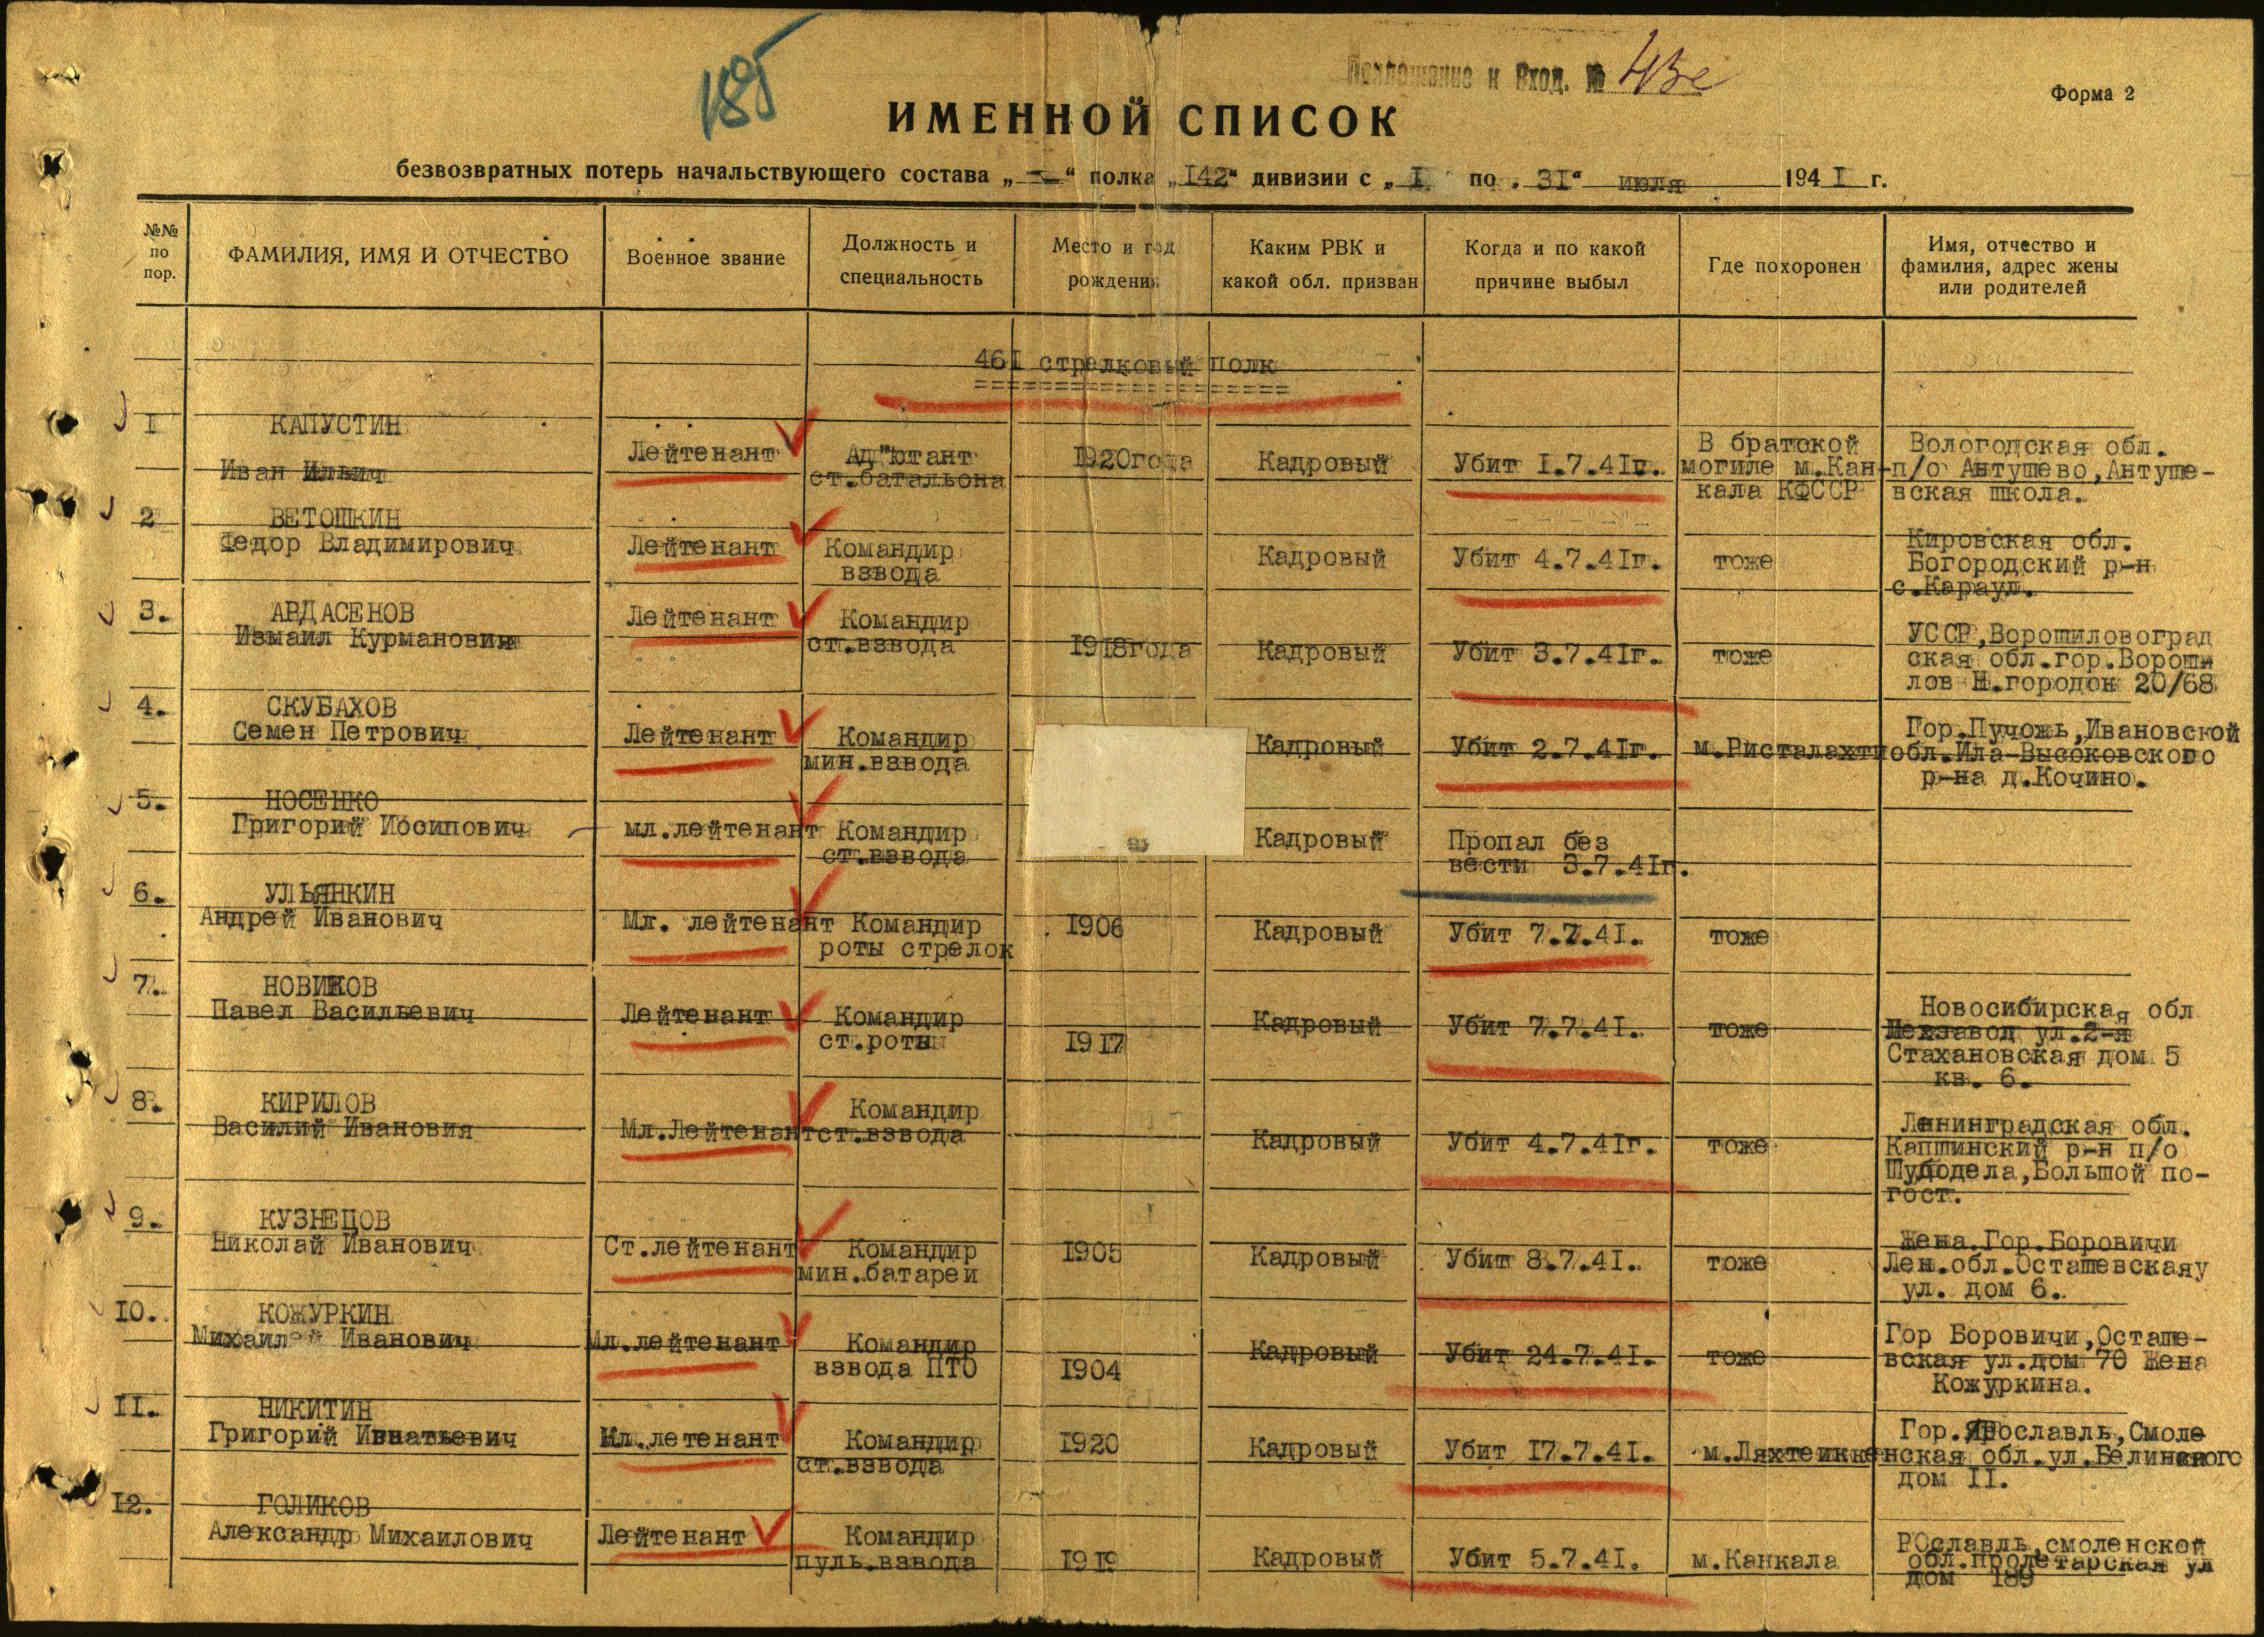 185
Приложение к Вход. №
Форма 2
ИМЕННОЙ СПИСОК
безвозвратных потерь начальствующего состава „ — “ полка „142“ дивизии с „ I “ по „ 31“ июля 194 I г.
№№ по пор.
ФАМИЛИЯ, ИМЯ И ОТЧЕСТВО
Военное звание
Должность и специальность
Место и год рождения
Каким РВК и какой обл. призван
Когда и по какой причине выбыл
Где похоронен
Имя, отчество и фамилия, адрес жены или родителей
461 стрелковый полк
====================
I КАПУСТИН
Иван Ильич
Лейтенант
Ад"ютант
ст.батальона
1920года
Кадровый
Убит I.7.41г.
В братской
могиле м.Кан-
кала КФССР
Вологодская обл.
п/о Антушево,Антуше-
вская школа.
2 ВЕТОШКИН
Федор Владимирович
Лейтенант
Командир
взвода
Кадровый
Убит 4.7.41г.
тоже
Кировская обл.
Богородский р-н
с.Караул.
3. АВДАСЕНОВ
Измаил Курманович
Лейтенант
Командир
ст.взвода
1918года
Кадровый
Убит 3.7.41г.
тоже
УССР,Ворошиловоград
ская обл.гор.Вороши
лов Н.городок 20/68
4. СКУБАХОВ
Семен Петрович
Лейтенант
Командир
мин.взвода
Кадровый
Убит 2.7.41г.
м.Ристалахти
Гор.Пучожь,Ивановской
обл.Ила-Высоковского
р-на д.Кочино.
5. НОСЕНКО
Григорий Иосипович
мл.лейтенант
Командир
ст.взвода
Кадровый
Пропал без
вести 3.7.41г.
6. УЛЬЯНКИН
Андрей Иванович
Мл. лейтенант
Командир
роты стрелок
1906
Кадровый
Убит 7.7.41.
тоже
7. НОВИКОВ
Павел Васильевич
Лейтенант
Командир
ст.роты
1917
Кадровый
Убит 7.7.41.
тоже
Новосибирская обл
Мехзавод ул.2-я
Стахановская дом 5
кв. 6.
8. КИРИЛОВ
Василий Ивановия
Мл.Лейтенант
Командир
ст.взвода
Кадровый
Убит 4.7.41г.
тоже
Ленинградская обл.
Капшинский р-н п/о
Шудодела,Большой по-
гост.
9. КУЗНЕЦОВ
Николай Иванович
Ст.лейтенант
Командир
мин.батареи
1905
Кадровый
Убит 8.7.41.
тоже
Жена.Гор.Боровичи
Лен.обл.Осташевскаяу
ул. дом 6.
10. КОЖУРКИН
Михаил Иванович
Мл.лейтенант
Командир
взвода ПТО
1904
Кадровый
Убит 24.7.41.
тоже
Гор Боровичи,Осташе-
вская ул.дом 70 Жена
Кожуркина.
11. НИКИТИН
Григорий Игнатьевич
Мл.летенант
Командир
ст.взвода
1920
Кадровый
Убит 17.7.41.
м.Ляхтеикке
Гор.Ярославль,Смоле
нская обл.ул.Белинского
дом II.
12. ГОЛИКОВ
Александр Михаилович
Лейтенант
Командир
пуль.взвода
1919
Кадровый
Убит 5.7.41.
м.Канкала
РОславль,смоленской
обл.пролетарская ул
дом 189